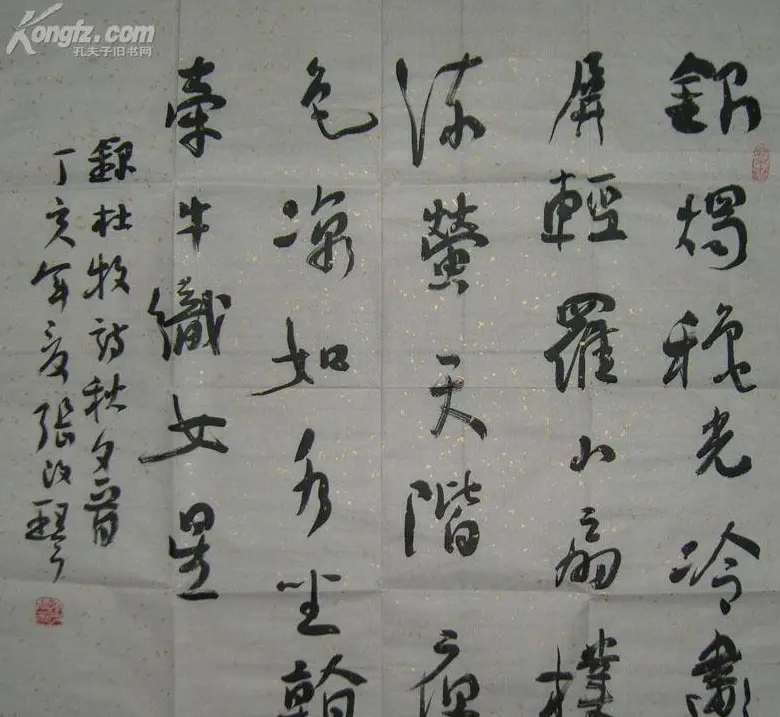 Kongfz.com
孔夫子旧书网
銀燭穐光冷畫
屏輕羅小扇撲
流螢天階夜
色涼如水坐看
牽牛織女星
錄杜牧詩秋夕一首
丁亥年夏張